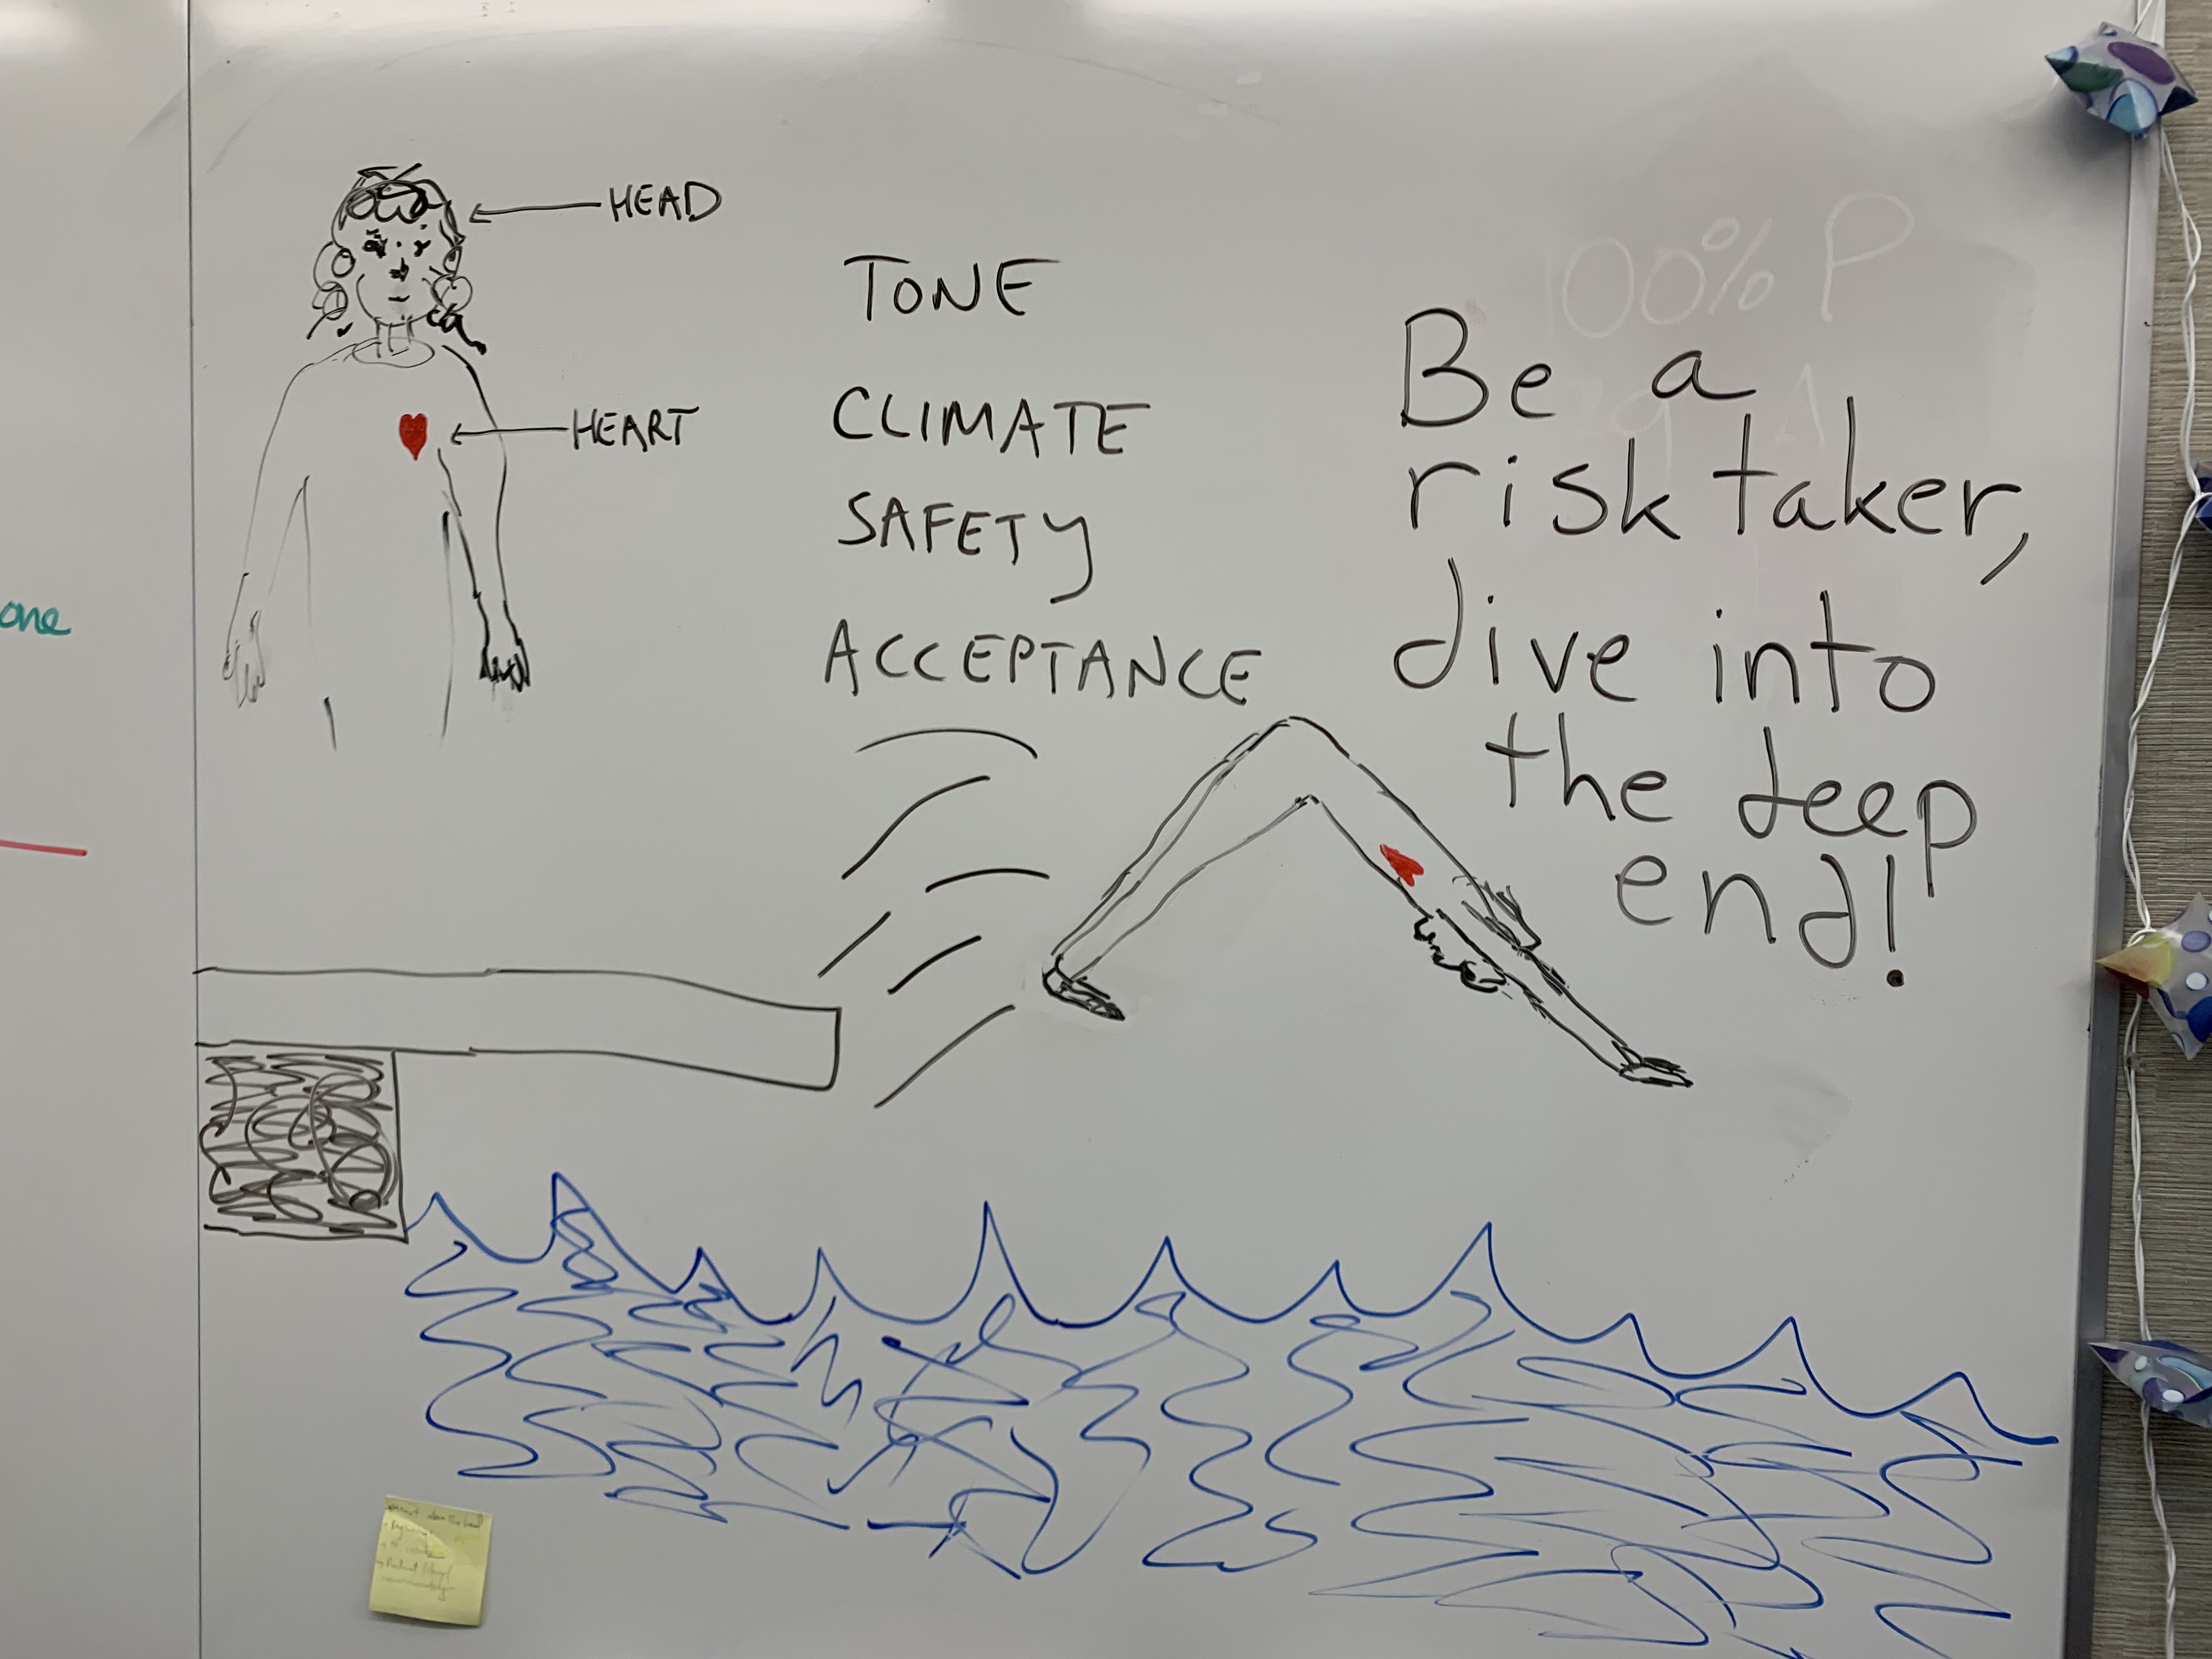 HEAD
HEART
TONE
CLIMATE
SAFETY
ACCEPTANCE
Be a
risk taker,
dive into
the deep
end!
00% P
one